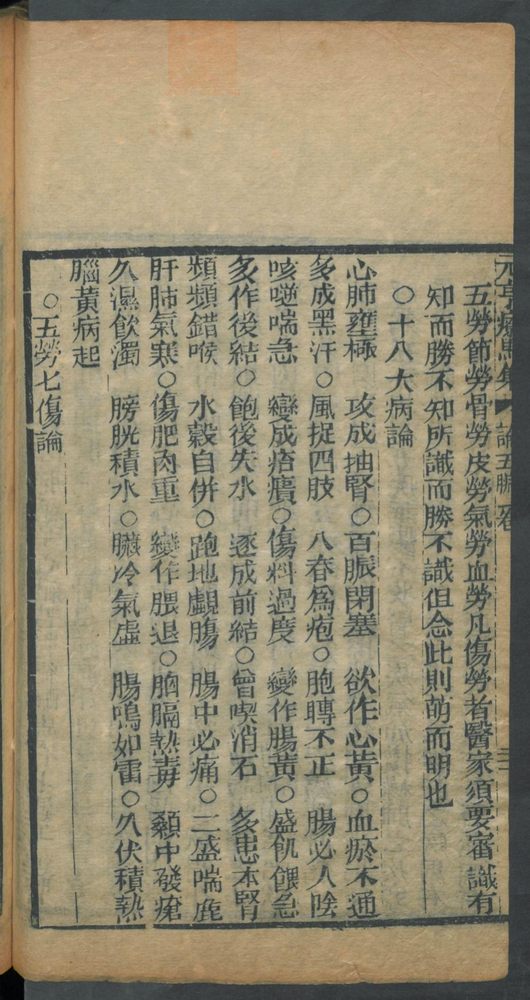 元亨療馬集 論五臟卷
五勞節勞骨勞皮勞氣勞血勞凡傷勞者醫家須要審識有
知而勝不知所識而勝不識但念此則萌而明也
○十八大病論
心肺壅極 攻成抽腎○百脈閉塞 欲作心黃○血瘀不通
多成黑汗○風捉四肢 八春為疱○胞轉不正 腸必入陰
咳𠹌喘急 變成痞癀○傷料過度 變作腸黃○盛飢餵急
多作後結○飽後失水 逐成前結○曾喫消石 多患本腎
頻頻錯喉 水穀自併○跑地覰膓 腸中必痛○二盛喘麄
肝肺氣寒○傷肥肉重 變作腲退○胸膈熱毒 顙中發瘡
久濕飲濁 膀胱積水○臟冷氣虛 腸鳴如雷○久伏積熱
腦黃病起
○五勞七傷論